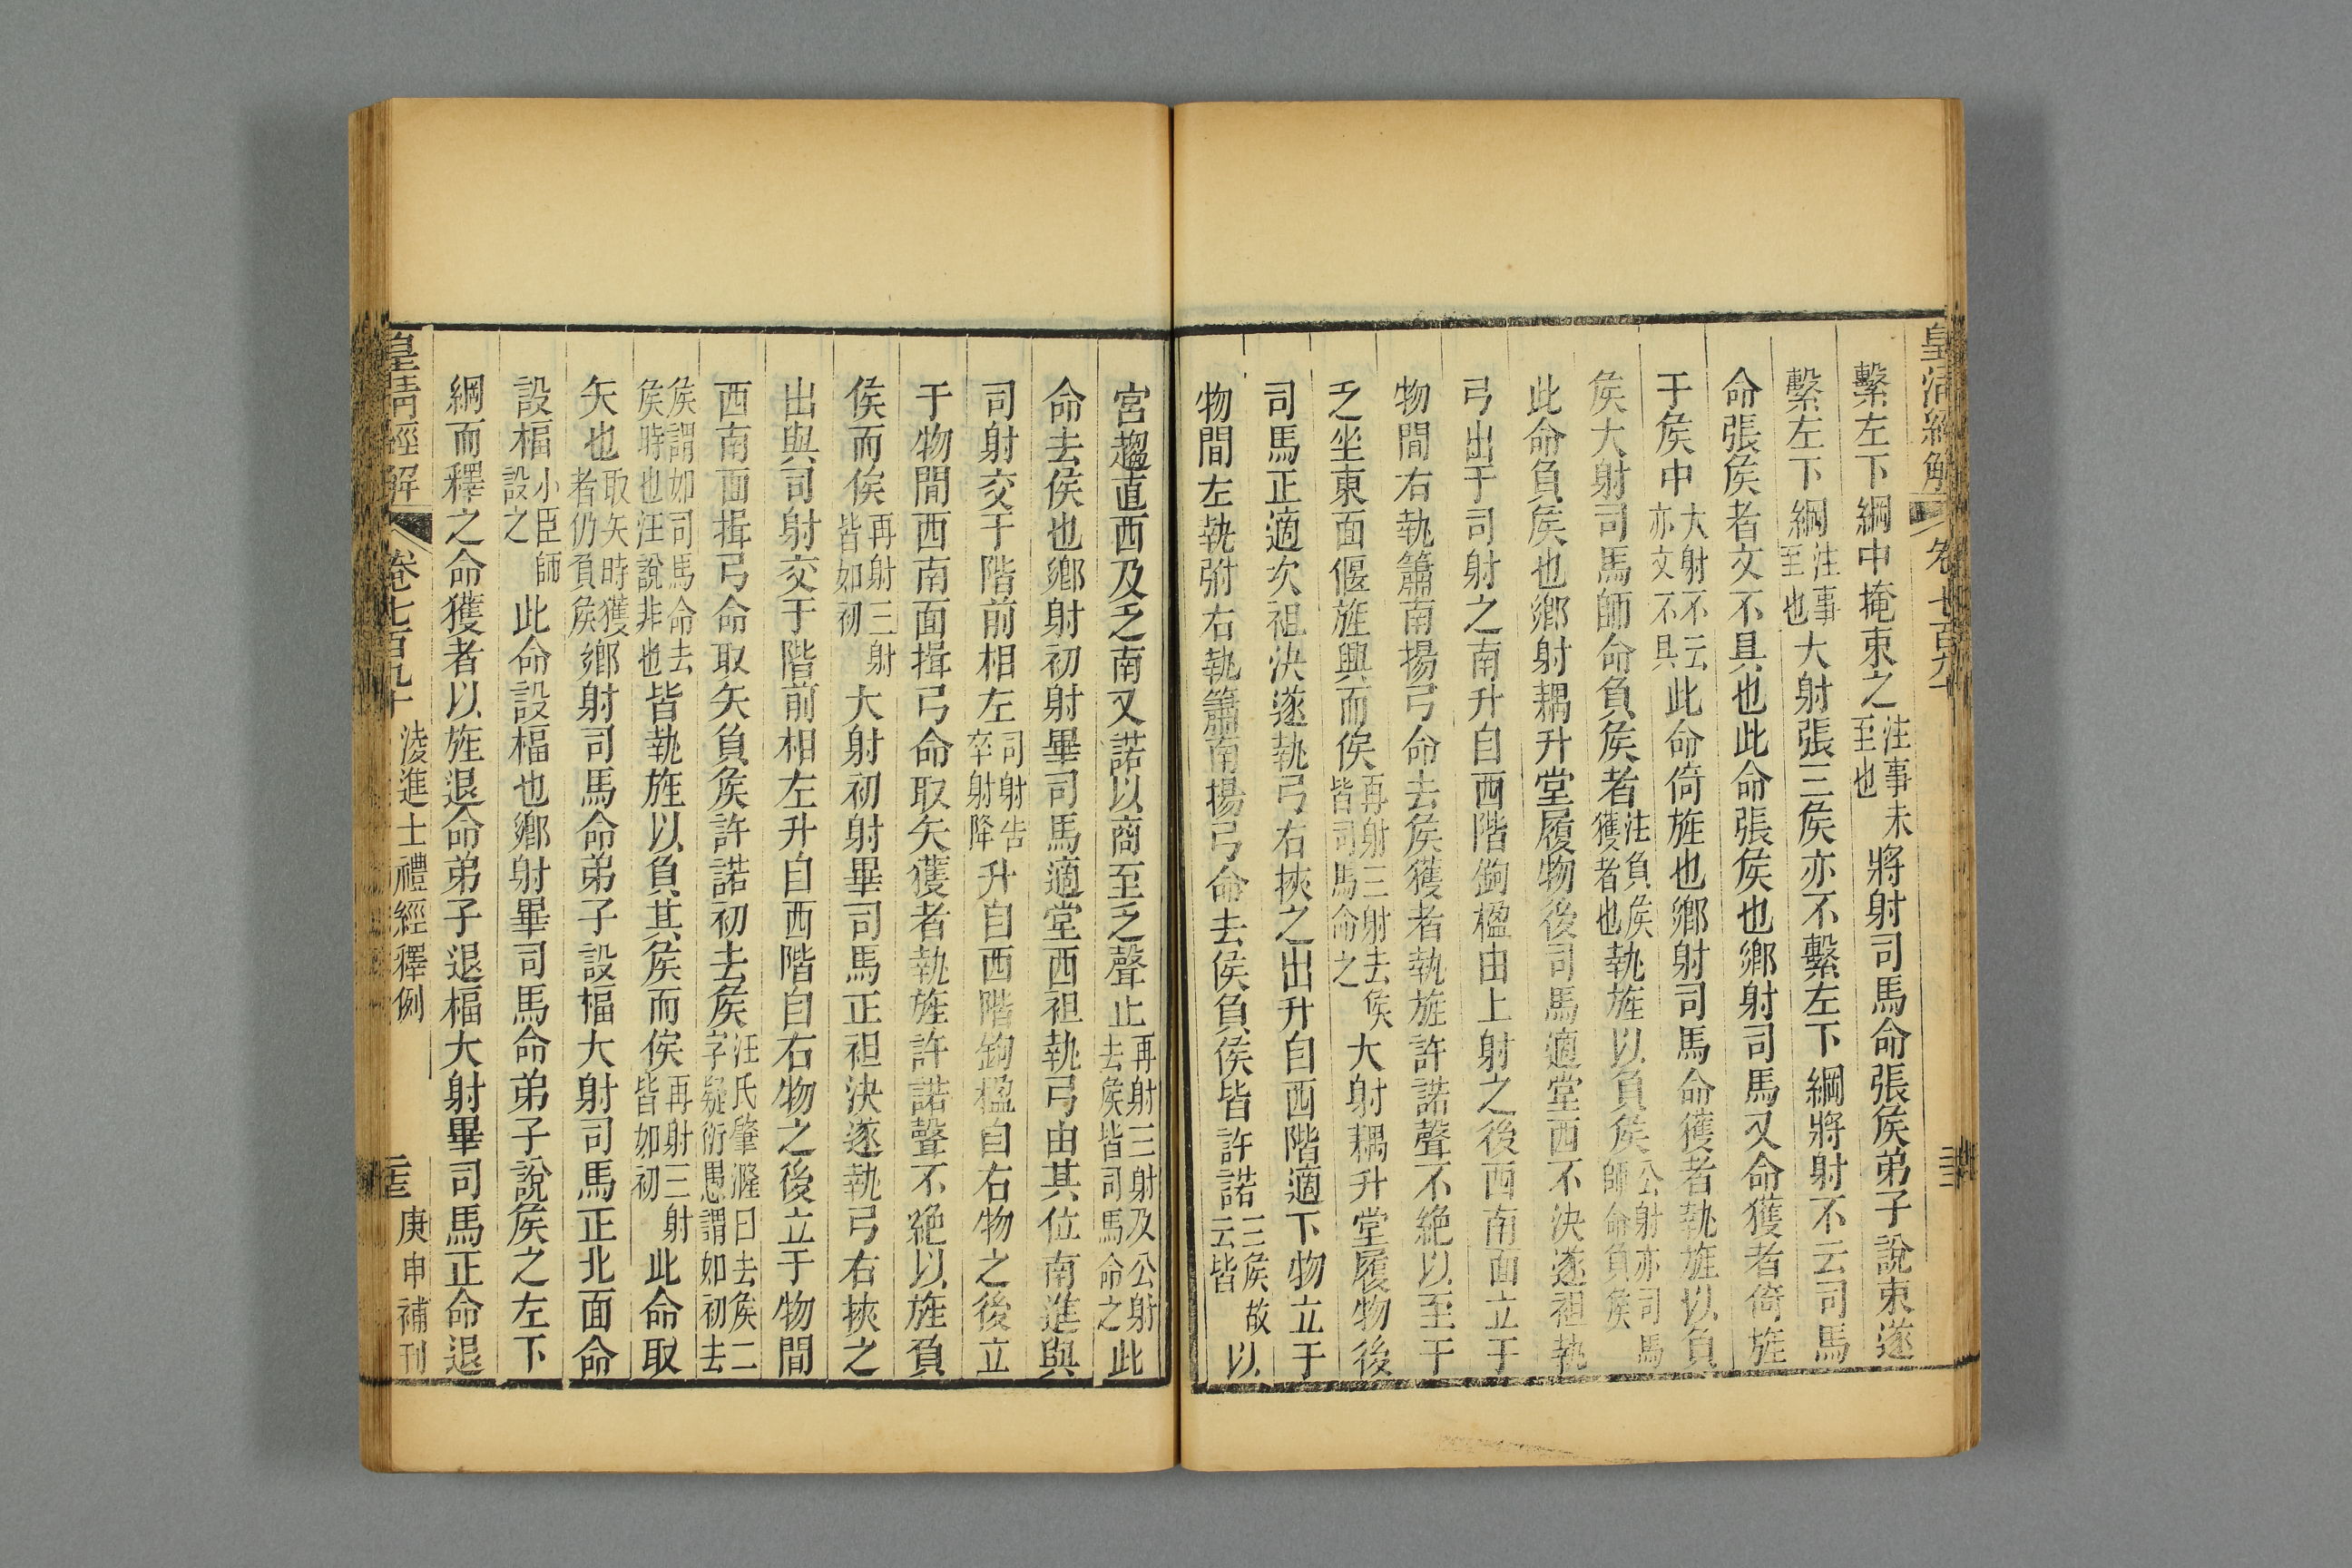 皇清經解 卷七百九十
繫左下綱中掩束之注事未至也將射司馬命張侯弟子說束遂
繫左下綱注事至也大射張三侯亦不繫左下綱將射不云司馬
命張侯者文不具也此命張侯也鄉射司馬又命獲者倚旌
于侯中大射不云亦文不具此命倚旌也鄉射司馬命獲者執旌以負
侯大射司馬師命負侯者注負侯獲者也執旌以負侯公射亦司馬師命負侯
此命負侯也鄉射耦升堂履物後司馬適堂西不決遂袒執
弓出于司射之南升自西階鉤楹由上射之後西南面立于
物間右執簫南揚弓命去侯獲者執旌許諾聲不絕以至于
乏坐東面偃旌興而俟再射三射去侯皆司馬命之大射耦升堂履物後
司馬正適次袒決遂執弓右挾之出升自西階適下物立于
物間左執弣右執簫南揚弓命去侯負侯皆許諾三侯故云皆以
宮趨直西及乏南又諾以商至乏聲止再射三射及公射去侯皆司馬命之此
命去侯也鄉射初射畢司馬適堂西袒執弓由其位南進與
司射交于階前相左司射告卒射降升自西階鉤楹自右物之後立
于物間西南面揖弓命取矢獲者執旌許諾聲不絕以旌負
侯而俟再射三射皆如初大射初射畢司馬正袒決遂執弓右挾之
出與司射交于階前相左升自西階自右物之後立于物間
西南面揖弓命取矢負侯許諾初去侯汪氏肇漋曰去侯二字疑衍愚謂如初去
侯謂如司馬命去侯時也汪說非也皆執旌以負其侯而俟再射三射皆如初此命取
矢也取矢時獲者仍負侯鄉射司馬命弟子設楅大射司馬正北面命
設楅小臣師設之此命設楅也鄉射畢司馬命弟子說侯之左下
綱而釋之命獲者以旌退命弟子退楅大射畢司馬正命退
皇清經解 卷七百九十 淩進士禮經釋例 庚申補刊